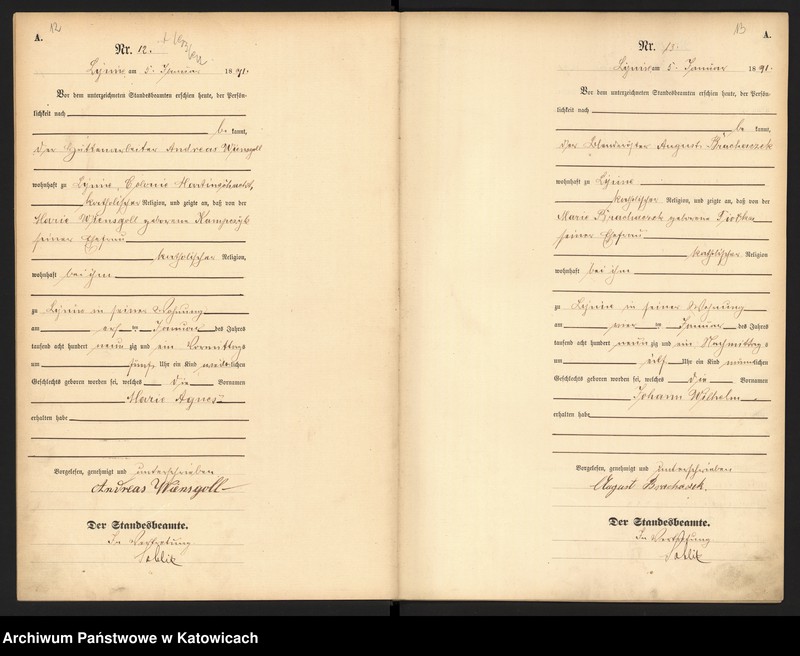 12
A.
Nr. 12.
Lipine am 5. Januar 1891.
Vor dem unterzeichneten Standesbeamten erschien heute, der Persön-
lichkeit nach
be kannt,
der Hüttenarbeiter Andreas Wiensgoll
wohnhaft zu Lipine, Colonie
katholischer Religion, und zeigte an, daß von der
Marie Wiensgoll geborene
seiner Ehefrau
katholischer Religion,
wohnhaft bei ihm
zu Lipine in seiner Wohnung
am ten Januar des Jahres
tausend acht hundert neun zig und ein Vormittags
um fünf Uhr ein Kind weiblichen
Geschlechts geboren worden sei, welches die Vornamen
Marie Agnes
erhalten habe
Vorgelesen, genehmigt und unterschrieben
Andreas Wiensgoll
Der Standesbeamte.
In Vertretung
13
A.
Nr. 13.
Lipine am 5. Januar 1891.
Vor dem unterzeichneten Standesbeamten erschien heute, der Persön-
lichkeit nach
be kannt,
der August
wohnhaft zu Lipine
katholischer Religion, und zeigte an, daß von der
Marie geborene
seiner Ehefrau
katholischer Religion
wohnhaft bei ihm
zu Lipine in seiner Wohnung
am ten Januar des Jahres
tausend acht hundert neun zig und ein Nachmittags
um Uhr ein Kind männlichen
Geschlechts geboren worden sei, welches die Vornamen
Johann Wilhelm
erhalten habe
Vorgelesen, genehmigt und unterschrieben
August
Der Standesbeamte.
In Vertretung
Archiwum Państwowe w Katowicach